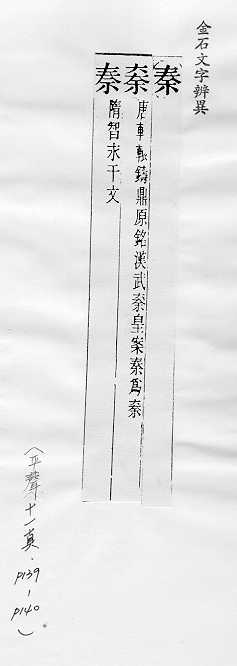 金石文字辨異
秦
唐車軫鑄鼎原銘漢武秦皇案秦爲秦
秦 隋智永千文
(平聲十一真.P139-P140)